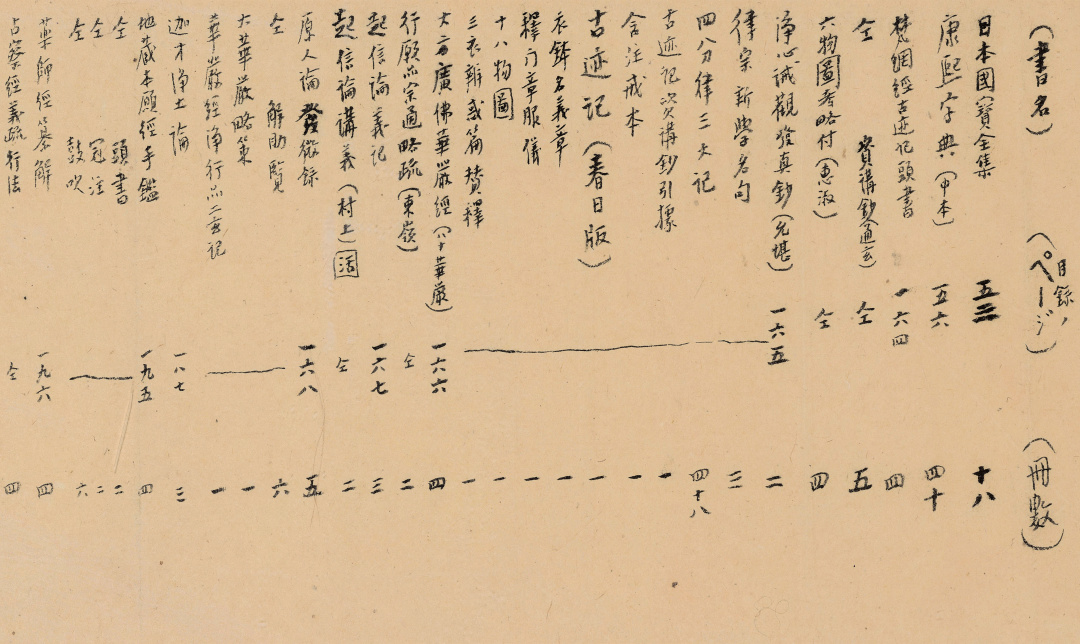 （書名） 目録ノ（ページ） （冊数）
日本國寶全集 五三 十八
康熙字典（中本） 五六 四十
梵網經古迹記頭書 一六四 四
仝 資講鈔（通玄） 仝 五
六物圖考略付（惠淑） 仝 四
淨心誡觀發真鈔（允堪） 一六五 二
律宗新學名句 三
四分律三大記 四十八
古迹記次講鈔引據 一
含注戒本 一
古迹記（春日版） 一
衣鉢名義章 一
釋門章服儀 一
十八物圖 一
三衣辨惑篇賛釋 一
大方廣佛華嚴經（八十華嚴） 一六六 四
行願品宗通略疏（東嶺） 仝 二
起信論義記 一六七 三
起信論講義（村上）活 仝 二
原人論發微録 一六八 五
仝 解助覽 六
大華嚴略策 一
華嚴經淨行品二玄記 一
迦才淨土論 一八七 三
地藏本願經手鑑 一九五 四
仝 頭書 二
仝 冠注 二
仝 鼓吹 六
藥師經纂解 一九六 四
占察經義疏行法 仝 四